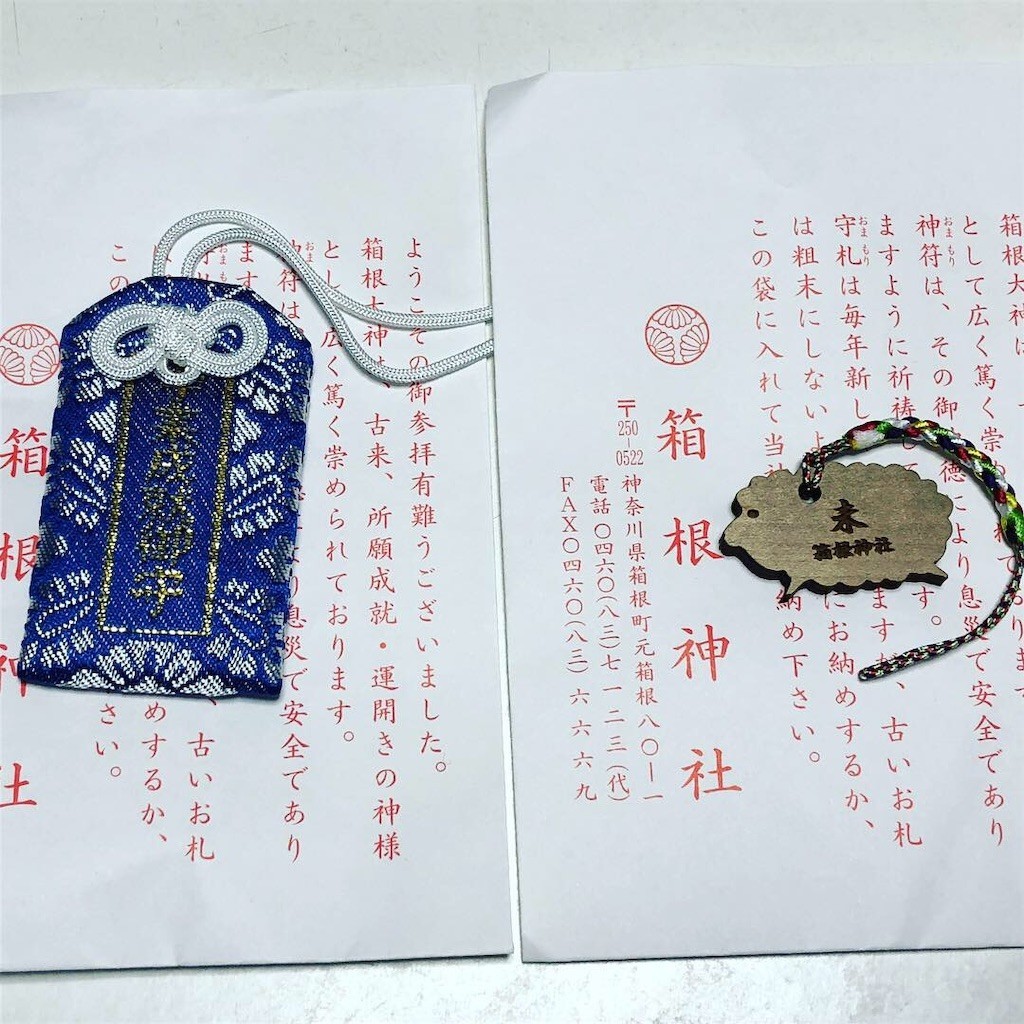 ようこその御参拝有難うございました。
箱根大神は、古来、所願成就・運開きの神様
として広く篤く崇められております。
符は
息災で安全であり
ます
古いお札
めするか、
この
さい。
箱根神社
御守
箱根大神は
として広く篤く崇め
息災で安全であり
神符は、その御
徳により
おまもり
ますように祈祷して
す。
守札は毎年新し
ますが、古いお札
おまもり
は粗末にしないよ
にお納めするか、
この袋に入れて当神
納め下さい。
箱根神社
〒250-0522
神奈川県箱根町元箱根八〇―一
電話〇四六〇(八三)七一二三(代)
FAX〇四六〇(八三)六六六九
未
箱根神社